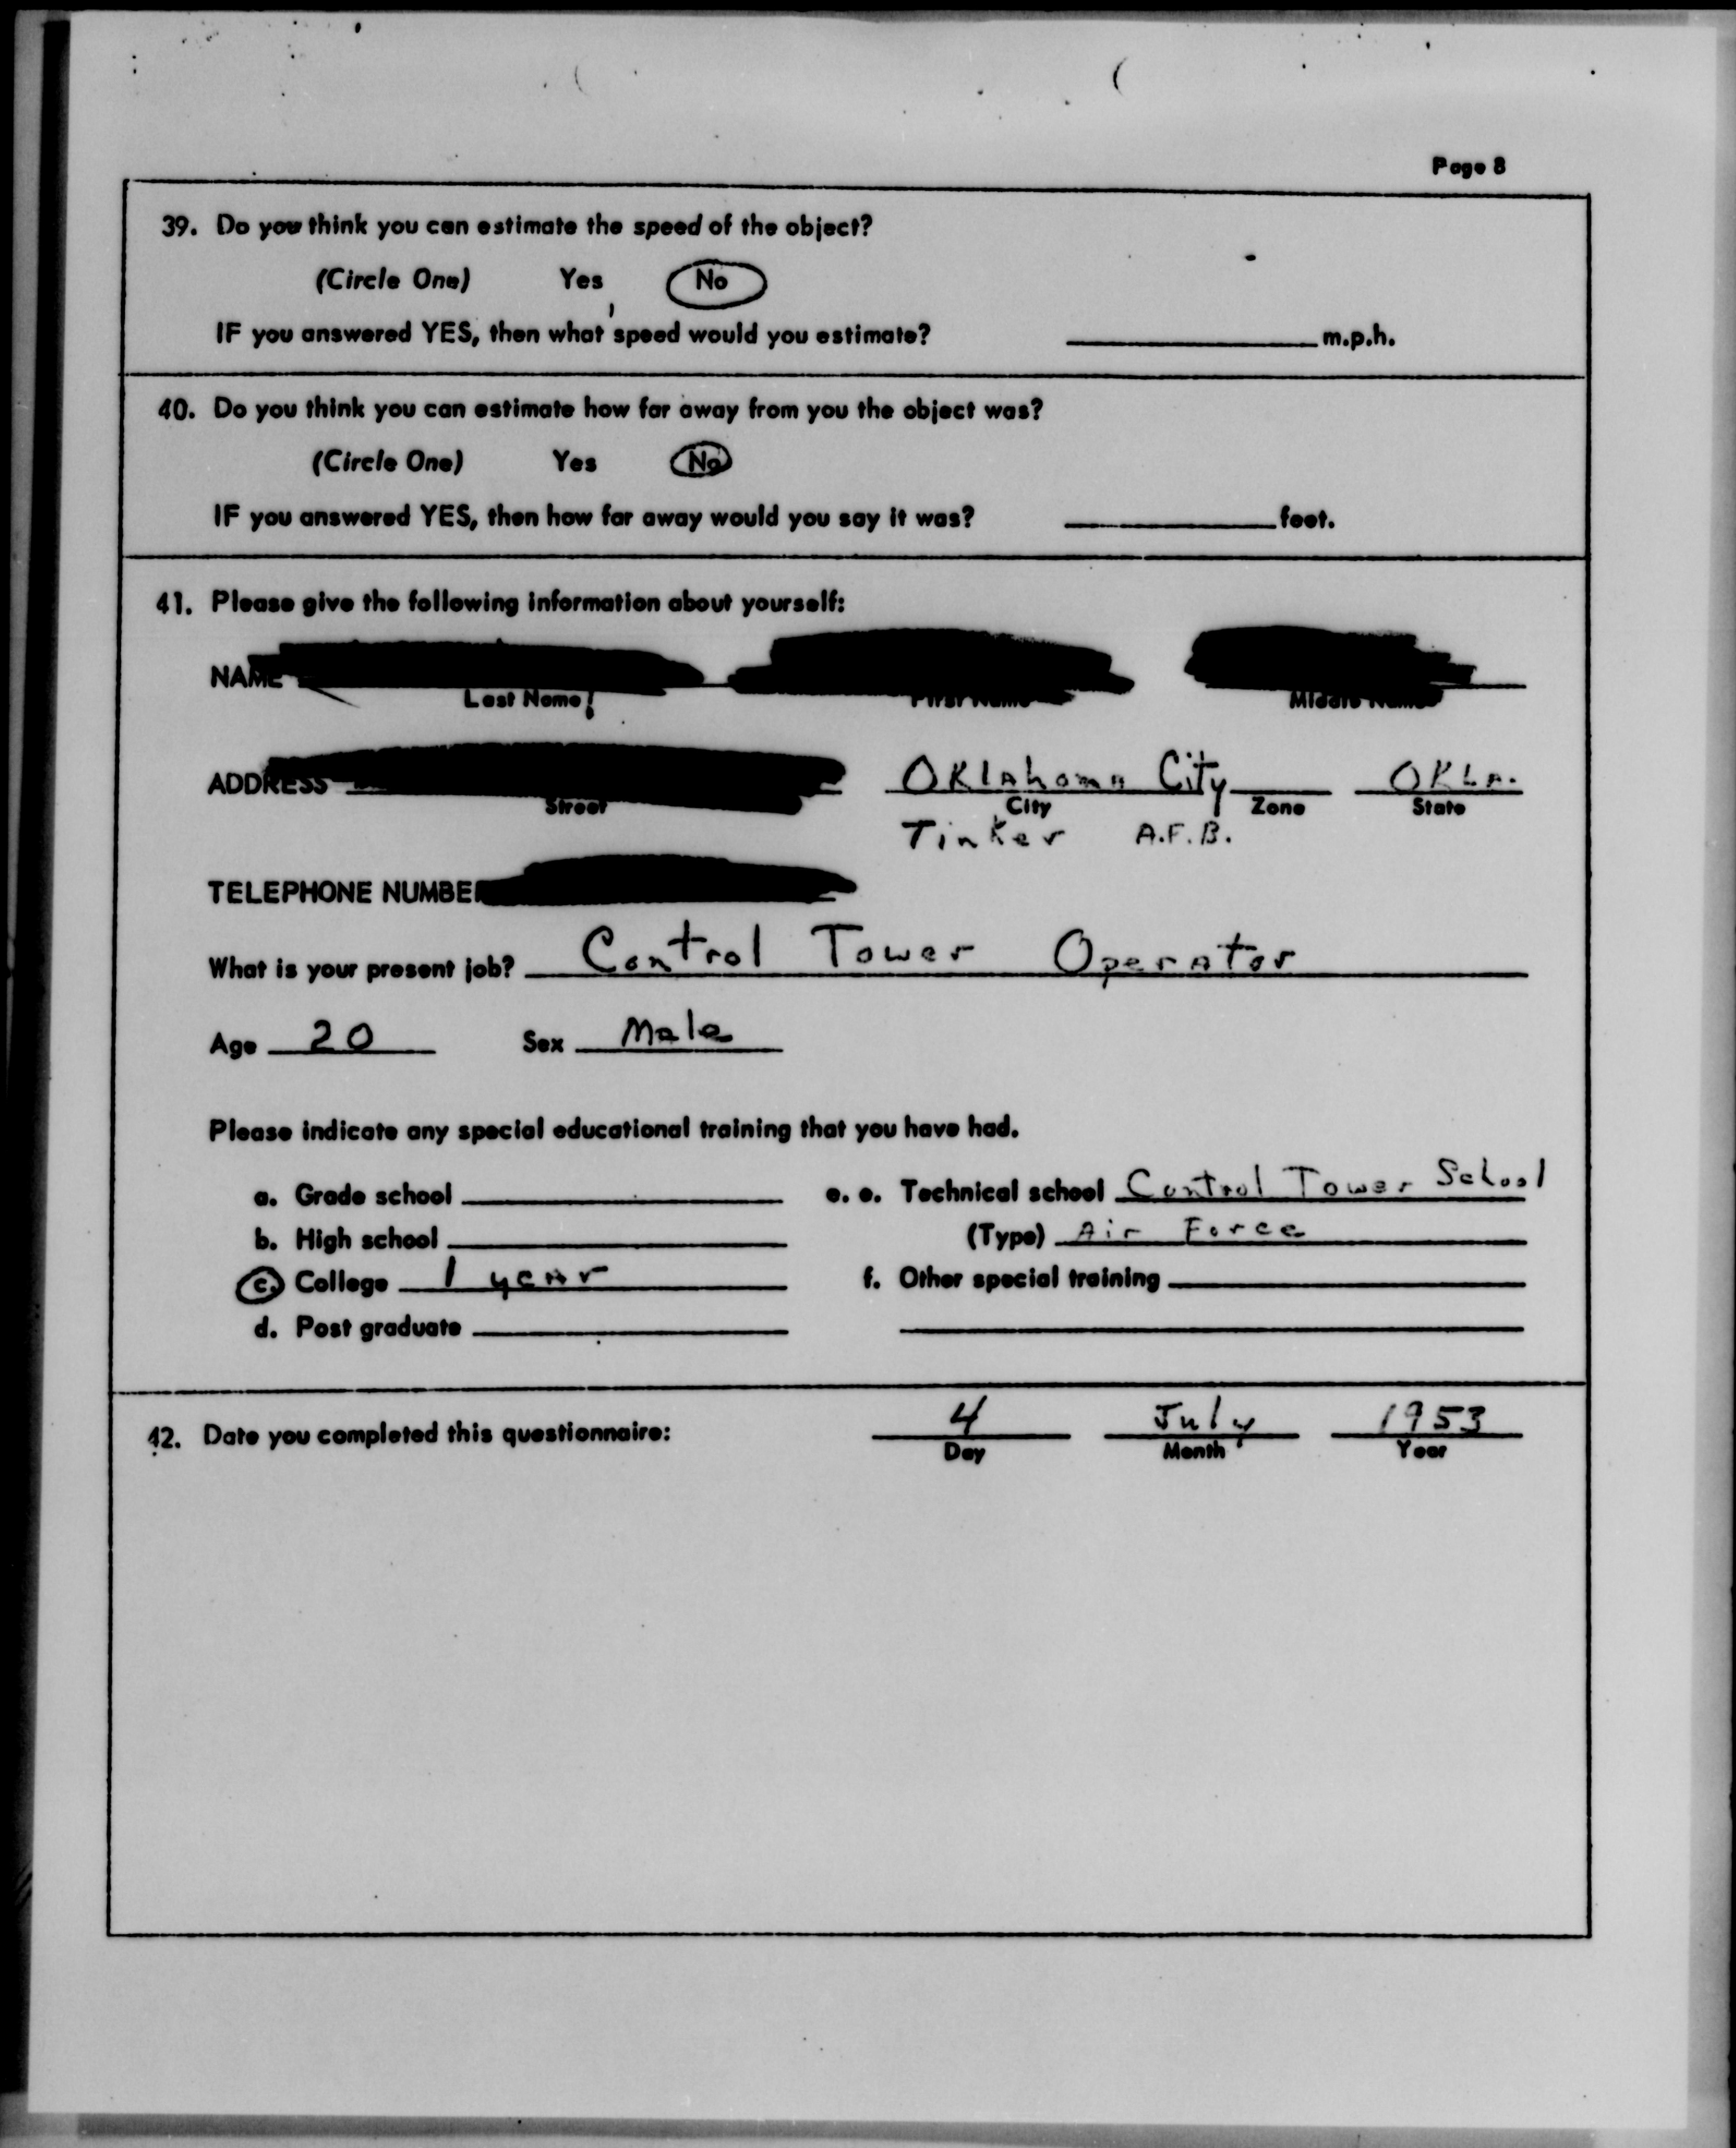 Page 8
39. Do you think you can estimate the speed of the object?
(Circle One) Yes No
IF you answered YES, then what speed would you estimate? m.p.h.
40. Do you think you can estimate how far away from you the object was?
(Circle One) Yes No
IF you answered YES, then how far away would you say it was? feet.
41. Please give the following information about yourself:
NAME
Last Name First Name Middle Name
ADDRESS Oklahoma City OKLA.
Street City Zone State
Tinker A.F.B.
TELEPHONE NUMBER
What is your present job? Control Tower Operator
Age 20 Sex Male
Please indicate any special educational training that you have had.
a. Grade school e. e. Technical school Control Tower School
b. High school (Type) Air Force
c. College 1 year f. Other special training
d. Post graduate
42. Date you completed this questionnaire: 4 July 1953
Day Month Year